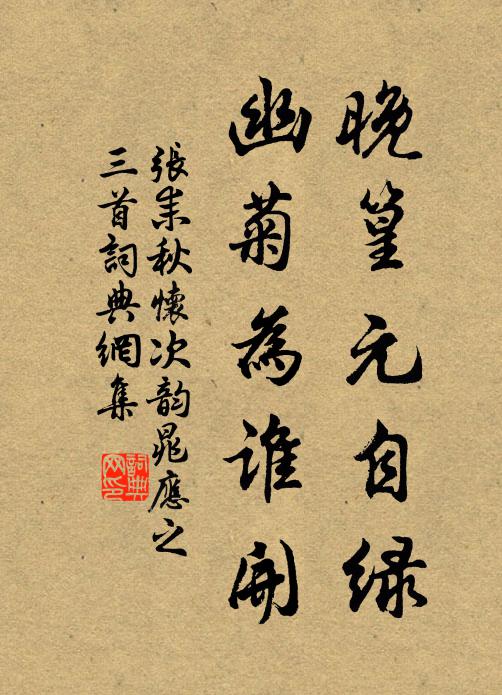 晚篁元自绿
幽菊為谁開
張耒秋懷次韵晁應之
三首詞典網集
詞典
网印